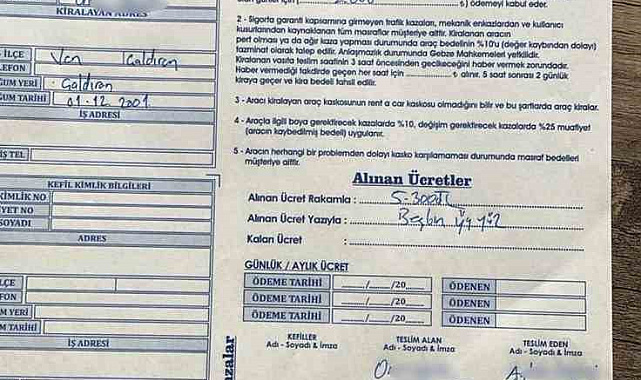 KİRALAYAN ADRES
İLÇE Van Çaldıran
EFON
UM YERİ : Çaldıran
UM TARİHİ 01.12.2001
İŞ ADRESİ
İŞ TEL
KEFİL KİMLİK BİLGİLERİ
KİMLİK NO
YET NO
SOYADI
ADRES
LÇE
FON
M YERİ
M TARİHİ
İŞ ADRESİ
₺ ödemeyi kabul eder.
2 - Sigorta garanti kapsamına girmeyen trafik kazaları, mekanik enkazlardan ve kullanıcı
kusurlarından kaynaklanan tüm masraflar müşteriye aittir. Kiralanan aracın
pert olması ya da ağır kaza yapması durumunda araç bedelinin %10'u (değer kaybından dolayı)
tazminat olarak talep edilir. Anlaşmazlık durumunda Gebze Mahkemeleri yetkilidir.
Kiralanan vasıta teslim saatinin 3 saat öncesinden gecikeceğini haber vermek zorundadır.
Haber vermediği takdirde geçen her saat için ............ ₺ alınır. 5 saat sonrası 2 günlük
kiraya geçer ve kira bedeli tahsil edilir.
3 - Aracı kiralayan araç kaskosunun rent a car kaskosu olmadığını bilir ve bu şartlarda araç kiralar.
4 - Araçla ilgili boya gerektirecek kazalarda %10, değişim gerektirecek kazalarda %25 muafiyet
(aracın kaybedilmiş bedeli) uygulanır.
5 - Aracın herhangi bir problemden dolayı kasko karşılamaması durumunda masraf bedelleri
müşteriye aittir.
Alınan Ücretler
Alınan Ücret Rakamla : 5.300TL
Alınan Ücret Yazıyla : Beşbin üç yüz
Kalan Ücret :
GÜNLÜK / AYLIK ÜCRET
ÖDEME TARİHİ ....../....../20...... ÖDENEN
ÖDEME TARİHİ ....../....../20...... ÖDENEN
ÖDEME TARİHİ ....../....../20...... ÖDENEN
KEFİLLER TESLİM ALAN TESLİM EDEN
Adı - Soyadı & İmza Adı - Soyadı & İmza Adı - Soyadı & İmza
O. A.
zalar